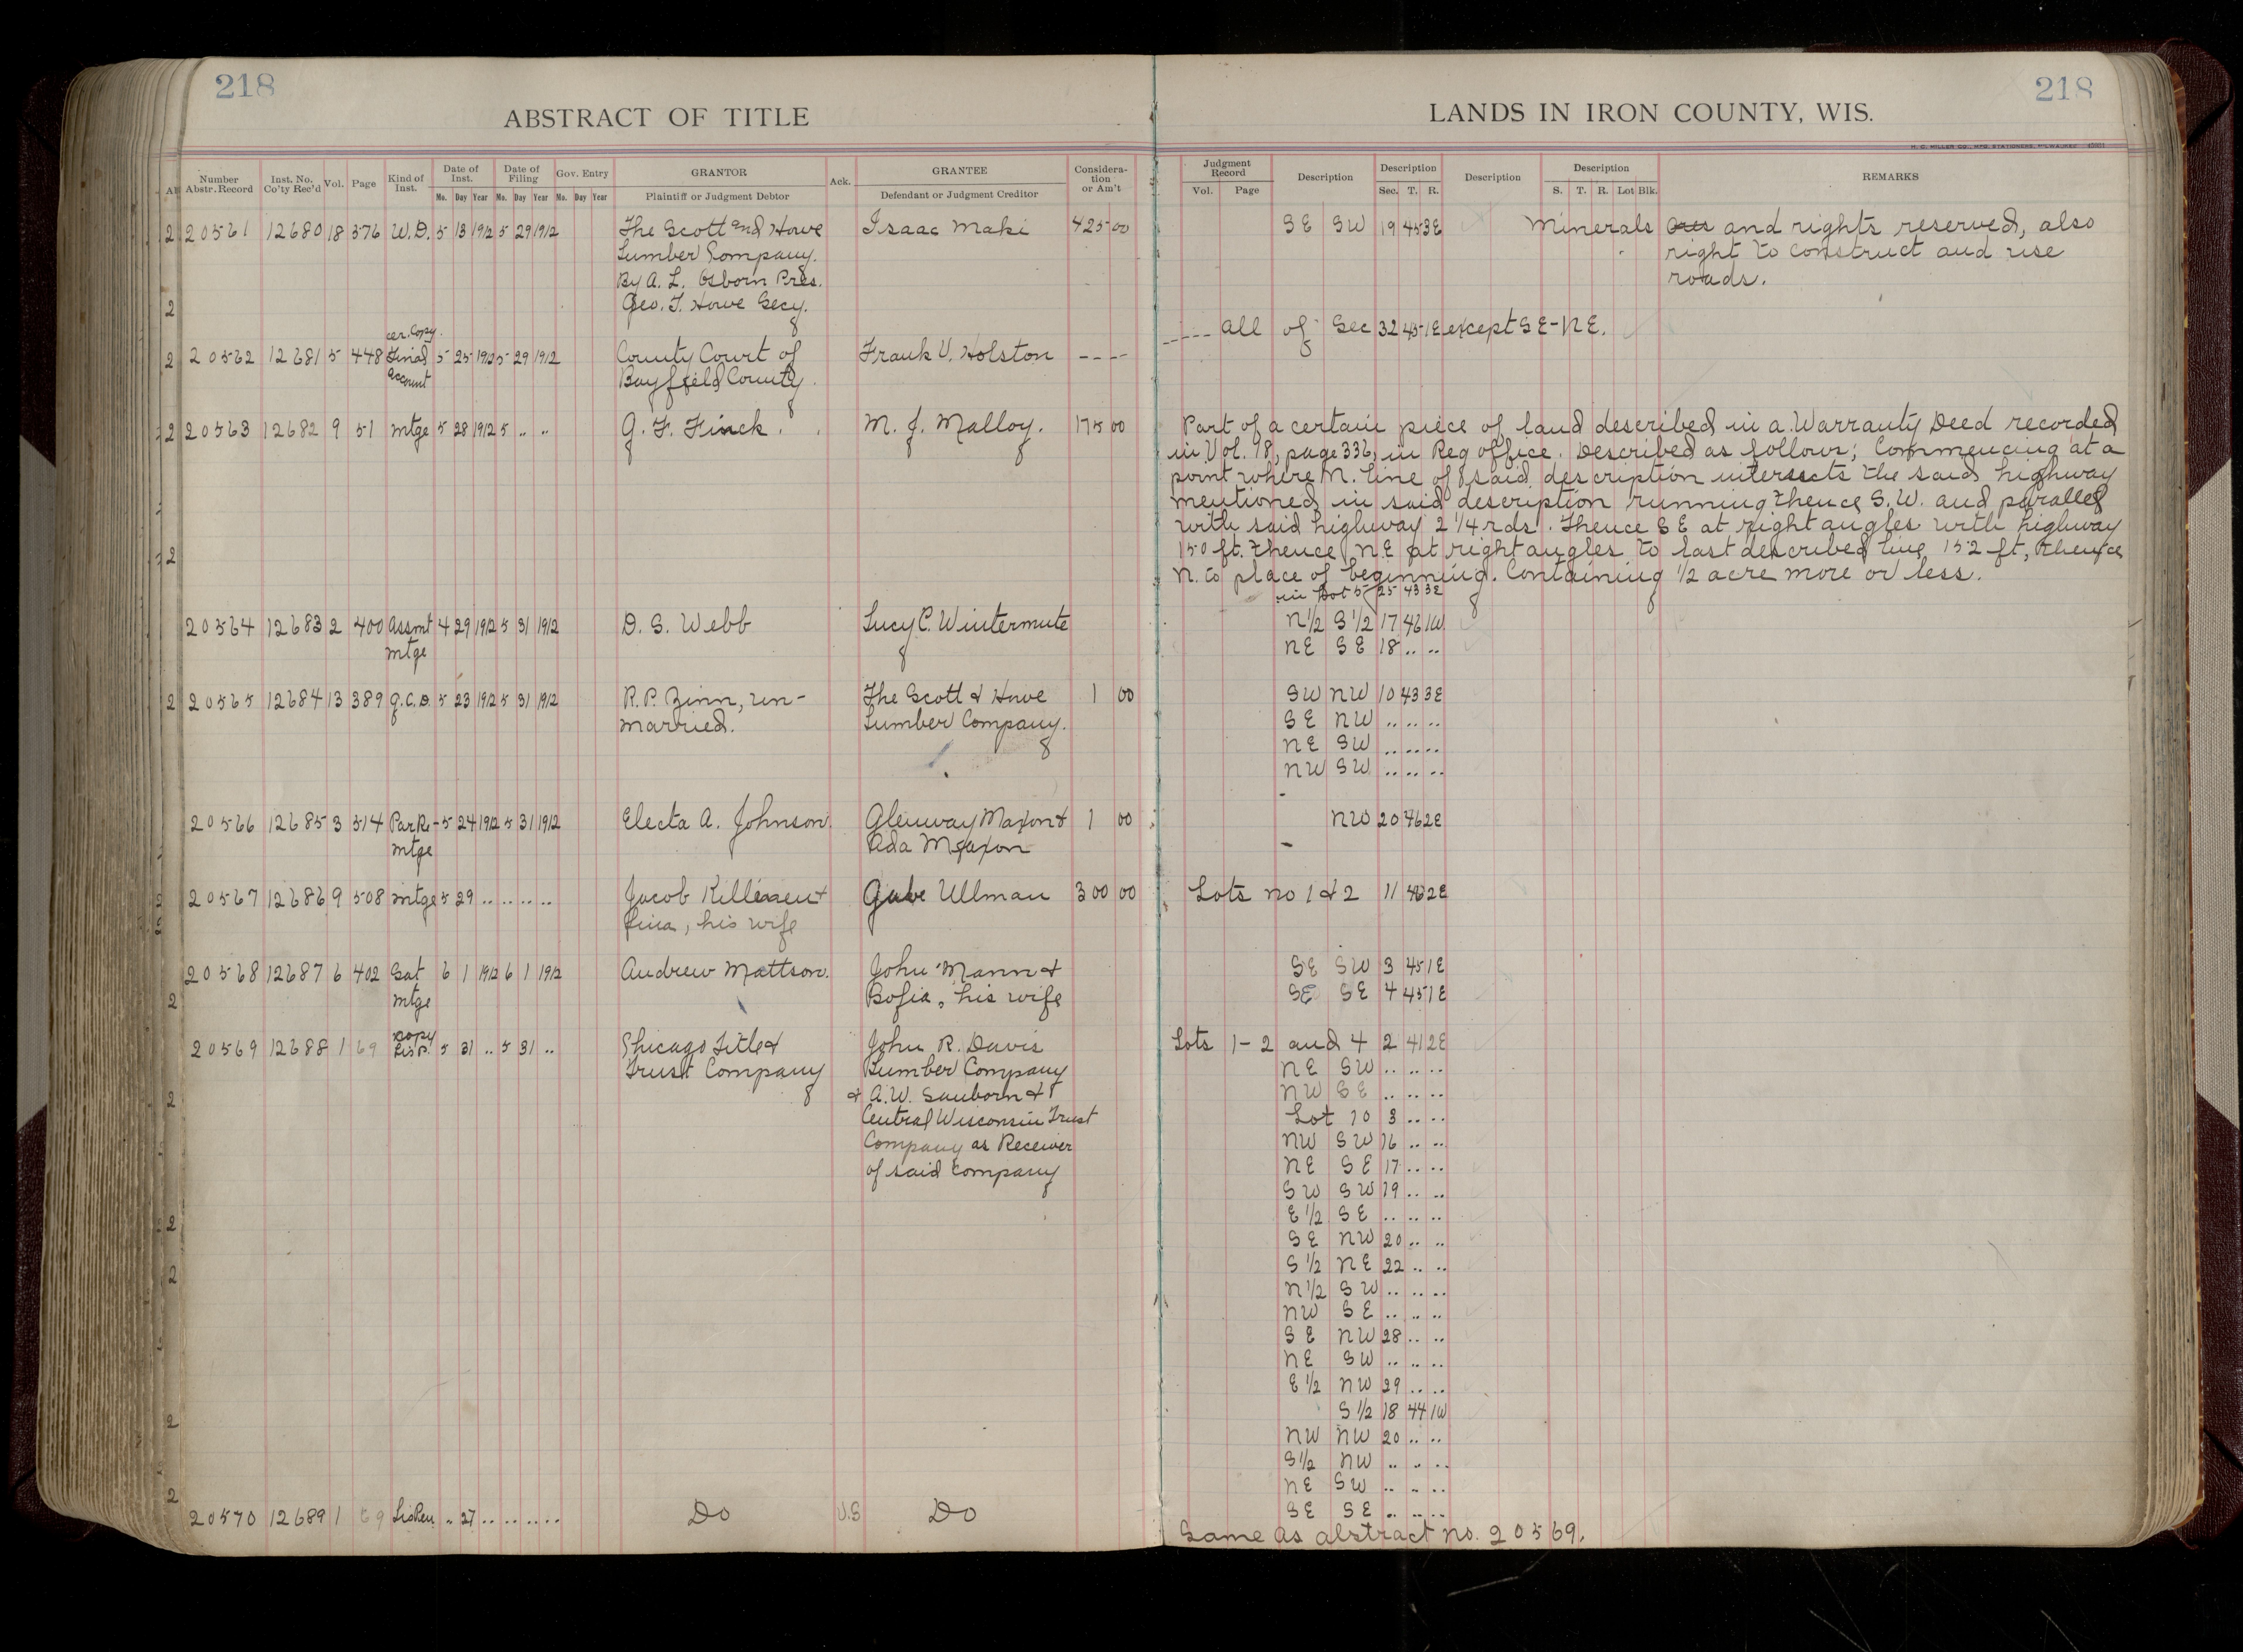 218
ABSTRACT OF TITLE
Number Abstr. Record Inst. No. Co'ty Rec'd Vol. Page Kind of Inst. Date of Inst. Date of Filing Gov. Entry GRANTOR Ack. GRANTEE Considera-tion or Am't
Mo. Day Year Mo. Day Year Mo. Day Year Plaintiff or Judgment Debtor Defendant or Judgment Creditor
20561 12680 18 376 W.D. 5 13 1912 5 29 1912 The Scott and Howe Isaac Maki 425 00
Lumber Company.
By A. L. Osborn Pres.
Geo. T. Howe Secy.
cer. Copy
20562 12681 5 448 Final 5 25 1912 5 29 1912 County Court of Frank V. Holston ----
account Bayfield County.
20563 12682 9 51 mtge 5 28 1912 5 .. .. G. F. Finck. M. J. Malloy. 175 00
20564 12683 2 400 Assmt 4 29 1912 5 31 1912 D. S. Webb Lucy C. Wintermute
mtge
20565 12684 13 389 Q.C.D. 5 23 1912 5 31 1912 R. P. Zinn, un- The Scott & Howe 1 00
married. Lumber Company.
20566 12685 3 514 PaRe- 5 24 1912 5 31 1912 Electa A. Johnson. Glenway Maxon & 1 00
mtge Ada Maxon
20567 12686 9 508 mtge 5 29 .. .. .. .. Jacob & Gabe Ullman 300 00
Lina, his wife
20568 12687 6 402 Sat 6 1 1912 6 1 1912 Andrew Mattson. John Mann &
mtge Sofia, his wife
copy
20569 12688 1 69 Lis P. 5 31 .. 5 31 .. Chicago Title & John R. Davis
Trust Company Lumber Company
& A. W. Sanborn &
Central Wisconsin Trust
Company as Receiver
of said Company
20570 12689 1 69 Lis Pen. .. 27 .. .. .. .. Do U.S Do
218
LANDS IN IRON COUNTY, WIS.
H. C. MILLER CO., MFG. STATIONERS, MILWAUKEE
Judgment Record Description Description Description Description REMARKS
Vol. Page Sec. T. R. S. T. R. Lot Blk.
SE SW 19 45 3E Minerals and rights reserved, also
right to construct and use
roads.
----- all of Sec 32 45 1E except SE-NE.
Part of a certain piece of land described in a Warranty Deed recorded
in Vol. 18, page 336, in Reg office. Described as follows; Commencing at a
point where N. line of said description intersects the said highway
mentioned in said description running thence S.W. and parallel
with said highway 2 1/4 rds. Thence SE at right angles with highway
150 ft. thence N.E at right angles to last described line 152 ft, thence
N. to place of beginning. Containing 1/2 acre more or less.
in Lot 5 25 43 3E
N1/2 S1/2 17 46 1W
NE SE 18 .. ..
SW NW 10 43 3E
SE NW .. .. ..
NE SW .. .. ..
NW SW .. .. ..
NW 20 46 2E
Lots no 1 & 2 11 46 2E
SE SW 3 45 1E
SE SE 4 45 1E
Lots 1-2 and 4 2 41 2E
NE SW .. .. ..
NW SE .. .. ..
Lot 10 3 .. ..
NW SW 16 .. ..
NE SE 17 .. ..
SW SW 19 .. ..
E1/2 SE .. .. ..
SE NW 20 .. ..
S1/2 NE 22 .. ..
N1/2 SW .. .. ..
NW SE .. .. ..
SE NW 28 .. ..
NE SW .. .. ..
E1/2 NW 29 .. ..
S1/2 18 44 1W
NW NW 20 .. ..
S1/2 NW .. .. ..
NE SW .. .. ..
SE SE .. .. ..
Same as abstract no. 20569.